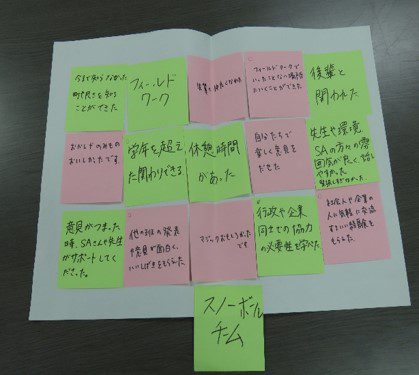 今まで知らなかった
町の良さを知る
ことができた
フィールド
ワーク
フィールドワークで
いったことない場所
にいくことができた
後輩と
関われた
おかしや のみもの
おいしかったです
学年を超え
た関わりできる
休憩時間
があった
自分たちで
楽しく意見を
だせた
先生や環境
SAの方々の雰
囲気が良く、話し
やすかった。
意見がつまった
時、SAさんや先生
がサポートしてく
ださった。
他の班の発表
や意見が面白く、
いいしげきをもらえた。
マジックおもしろかった
です
行政や企業
同士での協力
の必要性を学べた
人に気軽に
もらえた。
スノーボール
チーム